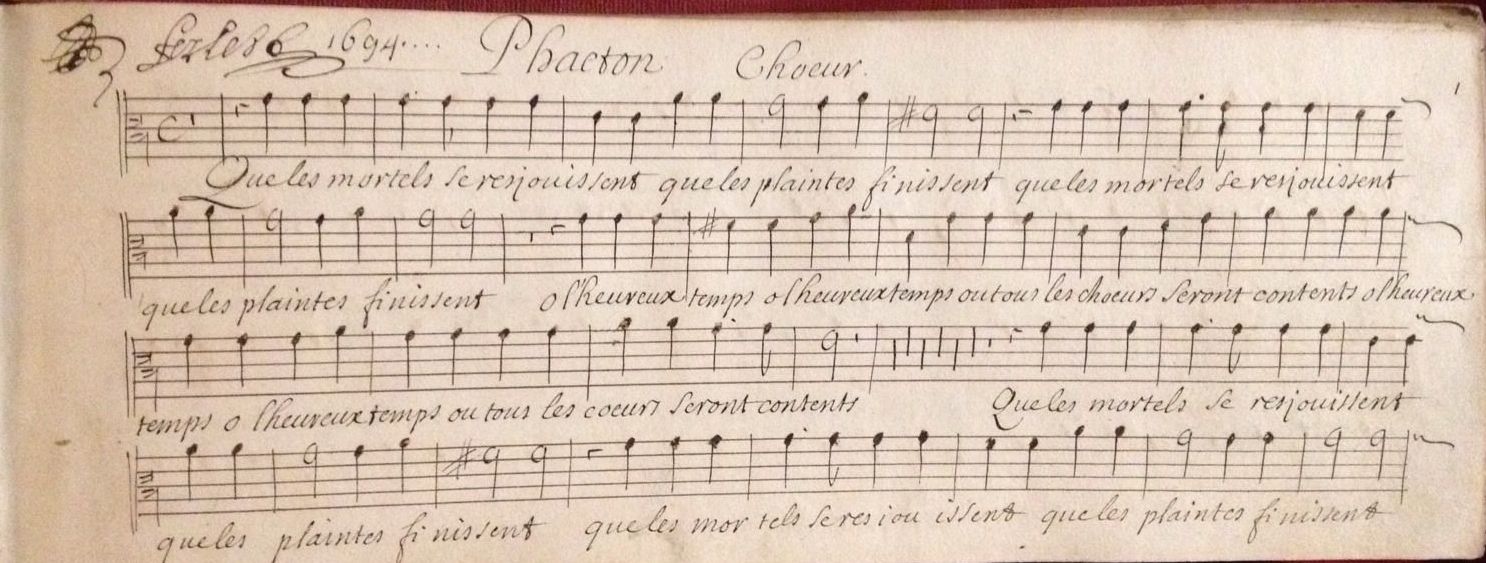 1694.... Phaeton Choeur.
Que les mortels se resjouissent que les plaintes finissent que les mortels se resjouissent
que les plaintes finissent o l'heureux temps o l'heureux temps ou tous les choeurs seront contents o l'heureux
temps o l'heureux temps ou tous les coeurs seront contents Que les mortels se resjouissent
que les plaintes finissent que les mortels se resiouissent que les plaintes finissent